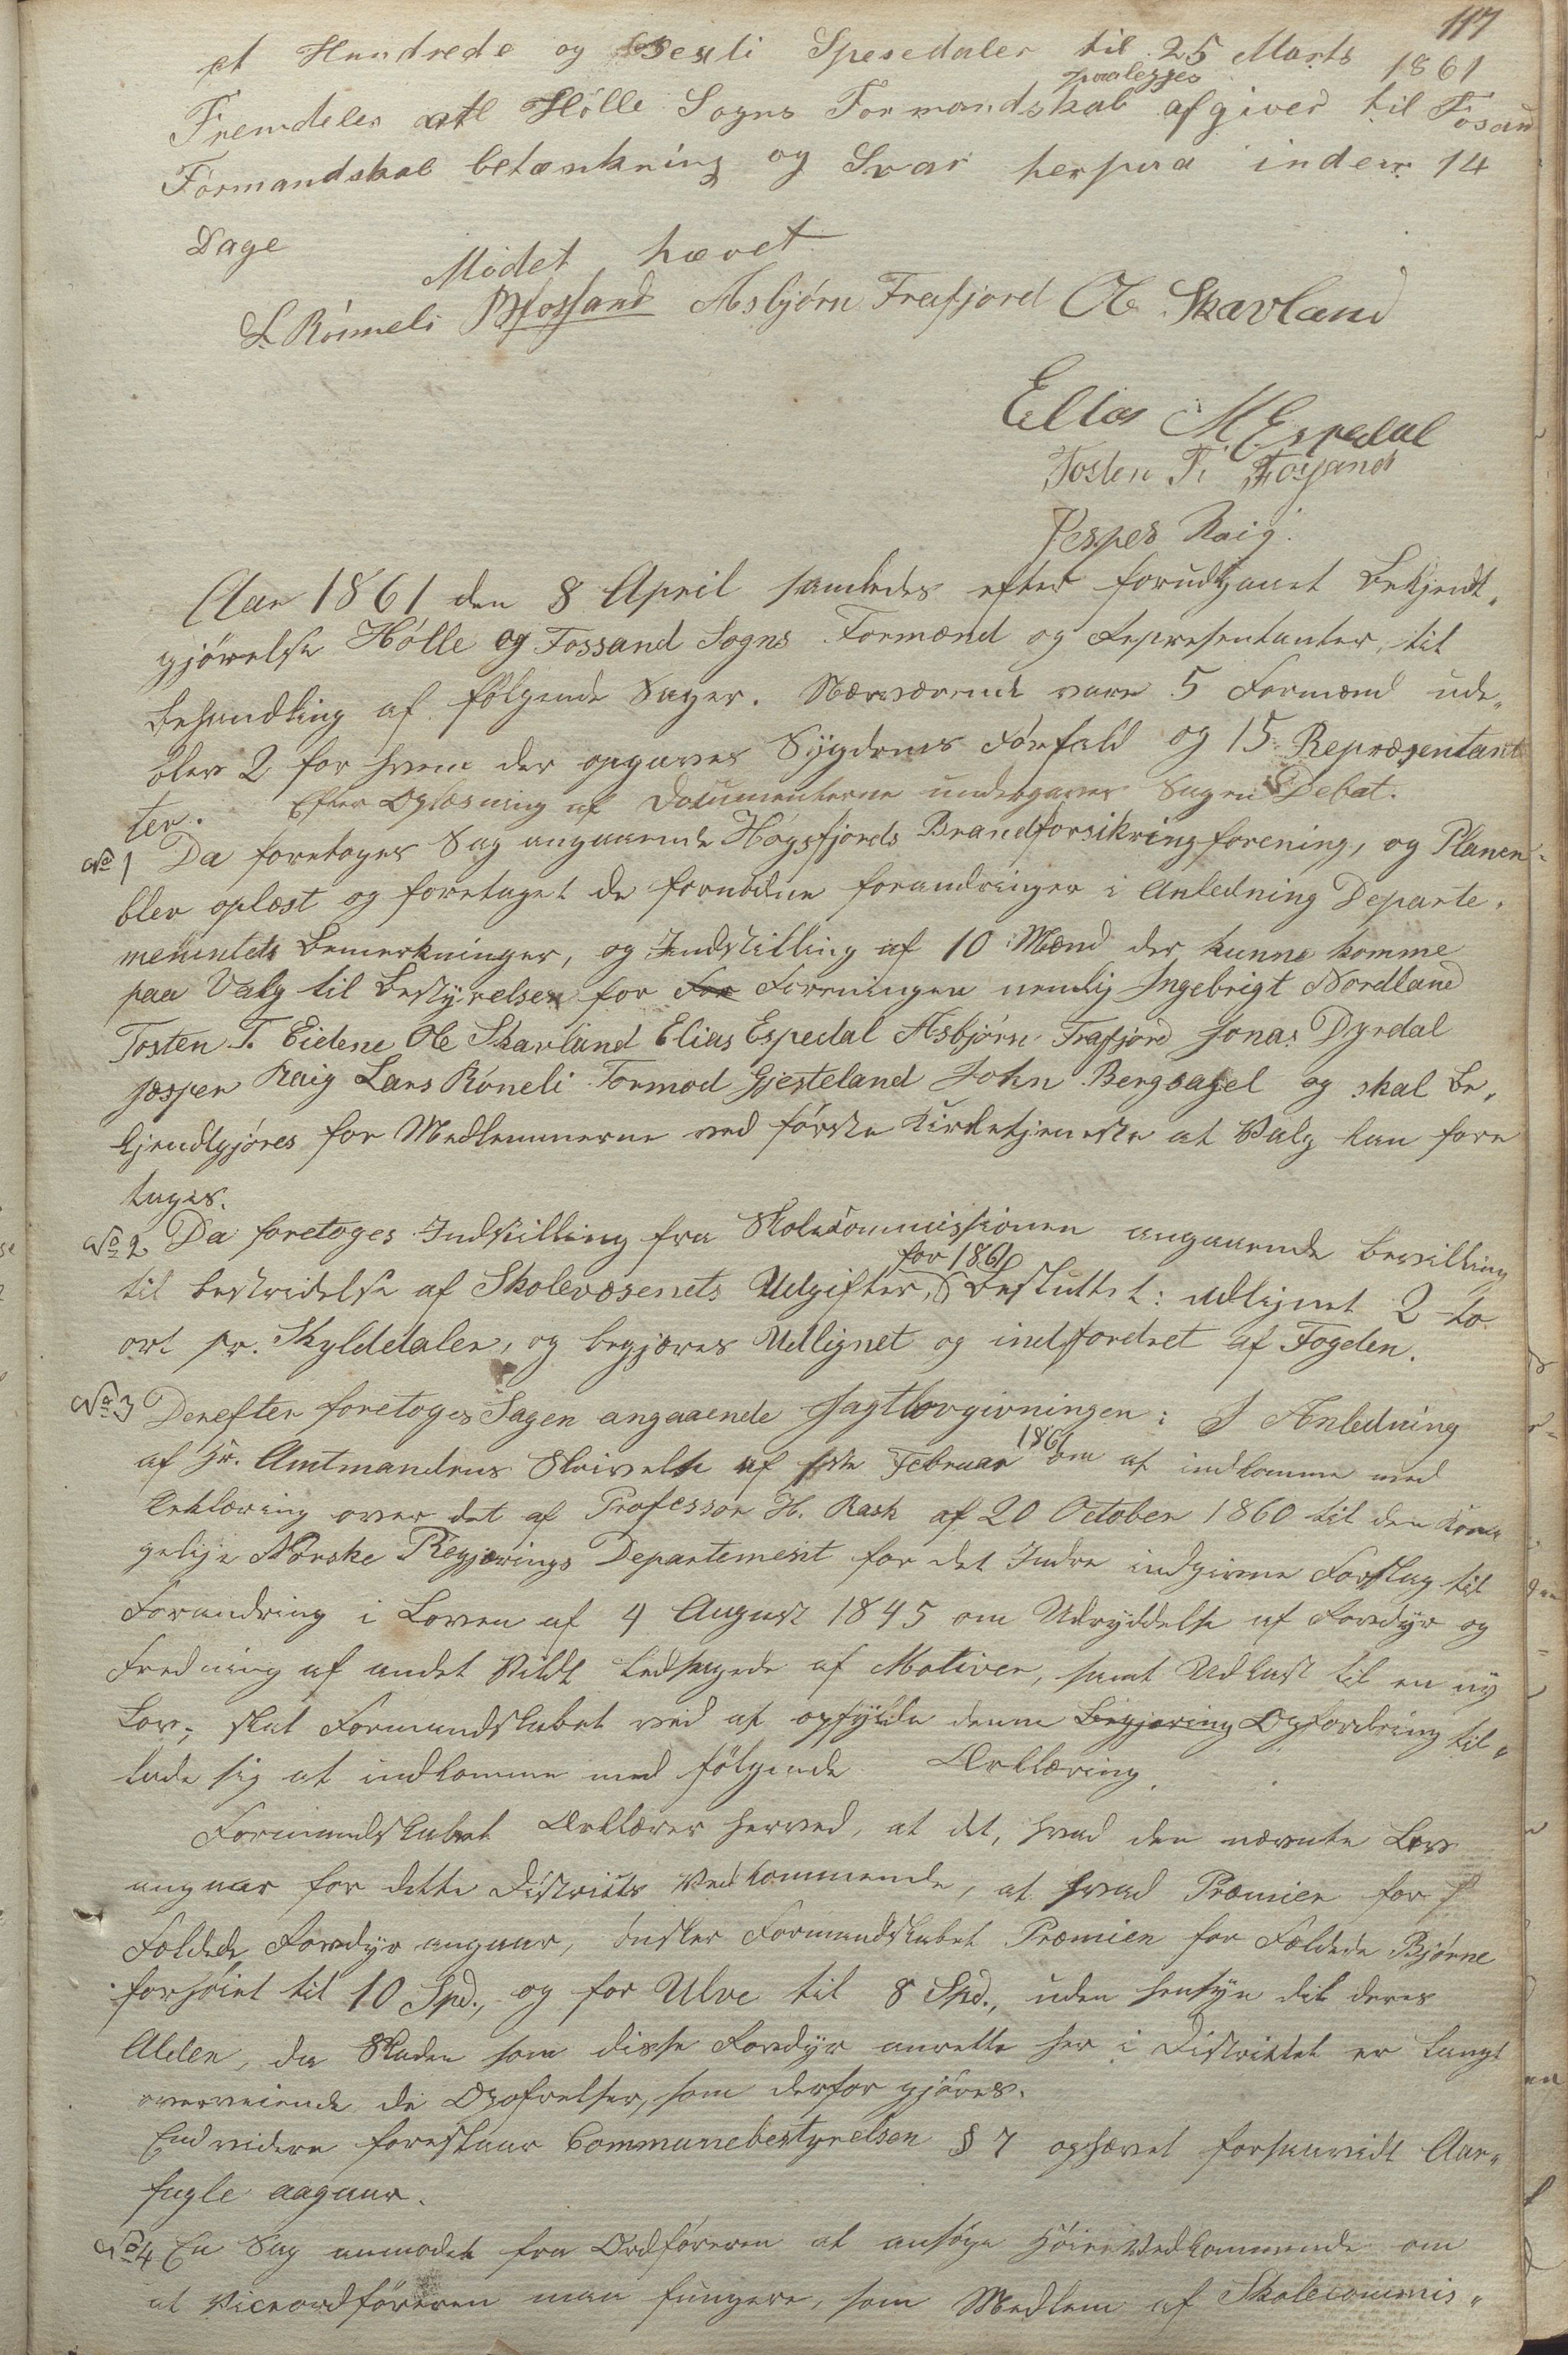 117
et Hundrede og Sexti Spesedaler til 25 Marts 1861
paalegges
Fremdeles at Hölle Sogns Formandskab afgiver til Fosan
Formandskab betænkning og Svar herpaa inden 14
Dage
Mödet hævet
L. Rönneli Asbjörn Frafjord Ole Skavland
Elias M. Espedal
Tosten T. Fossand
Jesper Raig.
Aar 1861 den 8 April samledes efter forudgaaet Bekjendt„
gjörelse Hölle og Fossand Sogns Formænd og Representanter, til
Behandling af fölgende Sager. Nærværende vare 5 Formænd ude„
blev 2 for hvem der opgaves Sygdoms Forfald og 15 Repræsentant
ter. Efter Oplæsning af Documenterne undergaves Sagen Debat.
No 1 Da foretoges Sag angaaende Högsfjords Brandforsikringforening, og Planen
blev oplæst og foretaget de fornödne forandringer i Anledning Departe„
mentets Bemerkninger, og Indstilling af 10 Mænd der kunne komme
paa Valg til Bestyrelsen for For Foreningen nemlig Ingebrigt Nordland
Tosten T. Eidene Ole Skavland Elias Espedal Asbjörn Frafjord Jonas Dyrdal
Jesper Raig Lars Röneli Tormod Gjesteland John Bergsagel og skal Be„
kjendtgjöres for Medlemmerne ved förste Kirketjeneste at Valg kan fore
tages.
No 2 Da foretoges Indstilling fra Skolecommissionen angaaende bevilling
for 1861
til bestridelse af Skolevæsenets Udgifter, Besluttet: udlignet 2 to
ort pr. Skylddaler, og begjæres Udlignet og indfordret af Fogden.
No 3 Derefter foretoges Sagen angaaende Jagtlovgivningen: I Anledning
1861
af Hr. Amtmandens Skrivelse af Februar om at indkomme med
Erklæring over det af Professor H. Rask af 20 October 1860 til den Kon„
gelige Norske Regjærings Departement for det Indre indgivne Forslag til
Forandring i Loven af 4 August 1845 om Udryddelse af Rovdyr og
Fredning af andet Vildt ledsagede af Motiver, samt Udkast til en ny
Lov; skal Formandskabet ved at opfylde denne Begjæring Opfordring til„
lade sig at indkomme med fölgende Erklæring.
Formandskabet Erklærer herved, at det, hvad den nævnte Lov
angaar for dette Districts Vedkommende, at hvad Præmier for f
Fældede Rovdyr angaar, önsker Formandskabet Præmien for Fældede Björne
forhöiet til 10 Spd., og for Ulve til 8 Spd., uden hensyn til deres
Alder, da Skaden som disse Rovdyr anrette her i Districtet er langt
overveiende de Opofrelser, som derfor gjöres.
Endvidere foreslaar Communebestyrelsen § 7 ophævet forsaavidt Aar„
fugle aagaar.
No 4 En Sag anmodet fra Ordföreren at ansöge Höie Vedkommende om
at Viceordföreren maa fungere, som Medlem af Skolecommis„